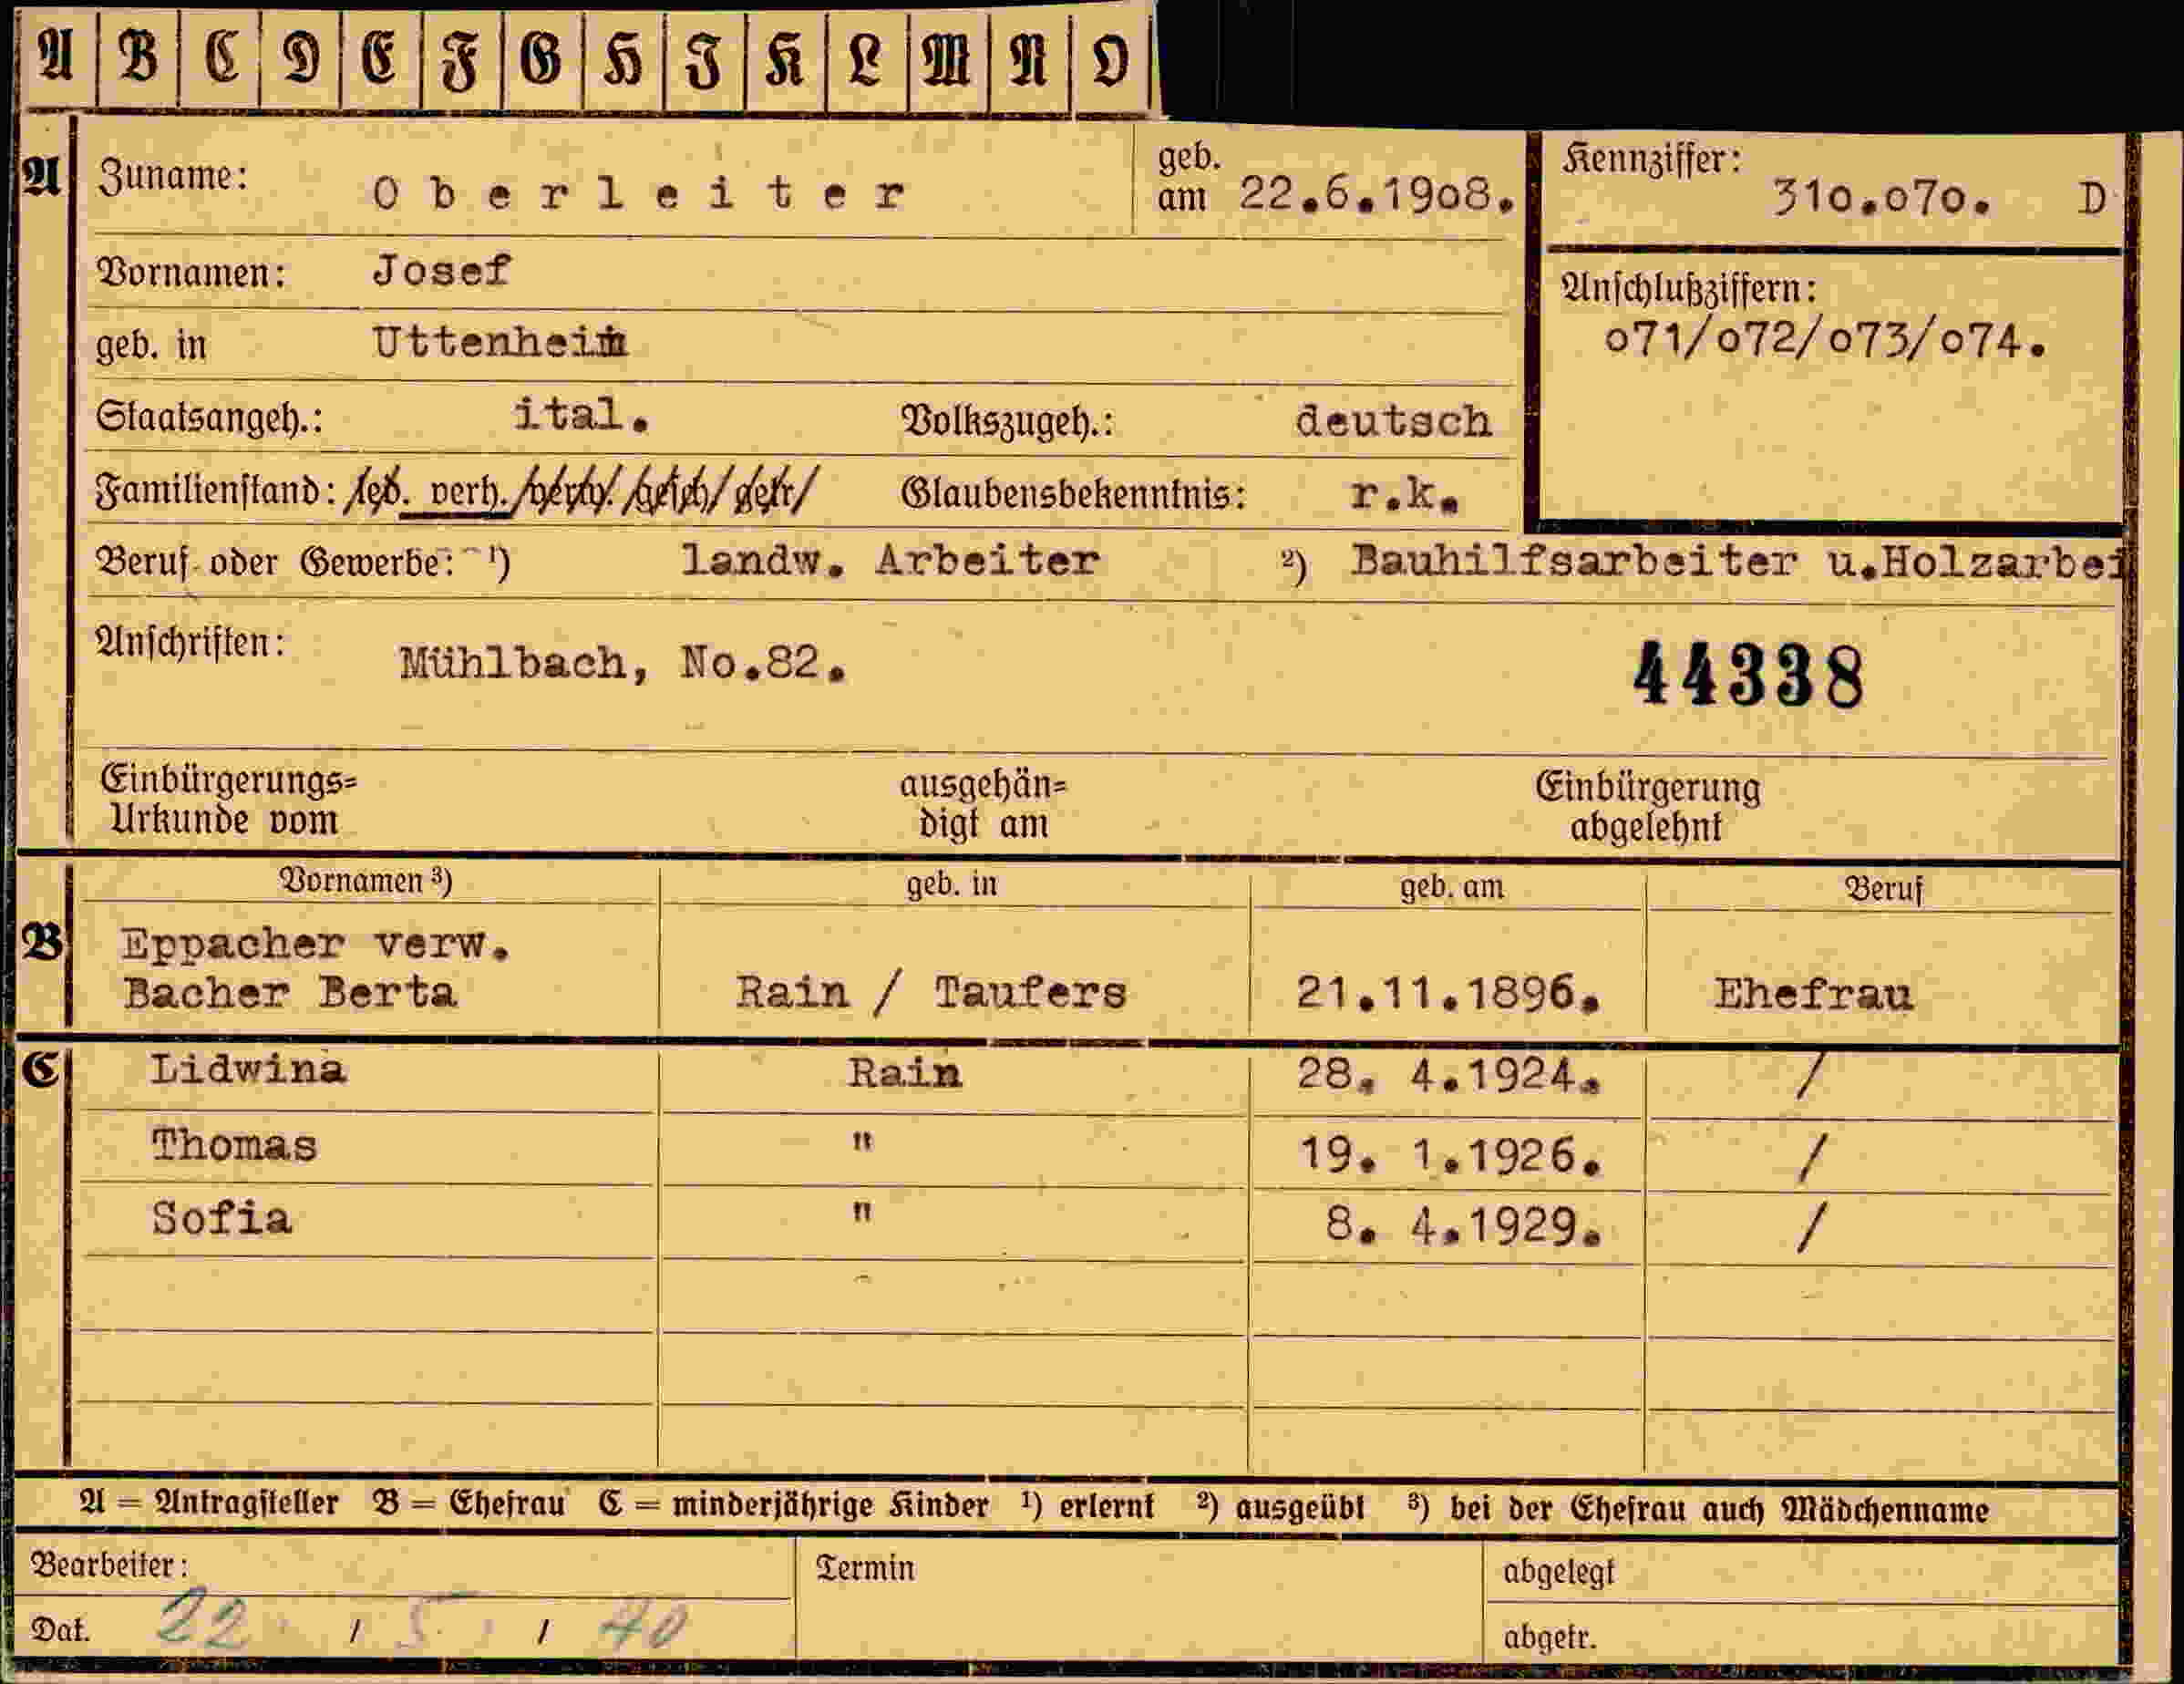 A B C D E F G H I K L M N O
A Zuname: Oberleiter geb. am 22.6.1908. Kennziffer: 310.070. D
Vornamen: Josef Anschlußziffern:
geb. in Uttenheim 071/072/073/074.
Staatsangeh.: ital. Volkszugeh.: deutsch
Familienstand: led. verh. verw. gesch. getr. Glaubensbekenntnis: r.k.
Beruf oder Gewerbe: 1) landw. Arbeiter 2) Bauhilfsarbeiter u.Holzarbei
Anschriften: Mühlbach, No.82. 44338
Einbürgerungs= ausgehän= Einbürgerung
Urkunde vom digt am abgelehnt
Vornamen 3) geb. in geb. am Beruf
B Eppacher verw.
Bacher Berta Rain / Taufers 21.11.1896. Ehefrau
C Lidwina Rain 28. 4.1924. /
Thomas " 19. 1.1926. /
Sofia " 8. 4.1929. /
A = Antragsteller B = Ehefrau C = minderjährige Kinder 1) erlernt 2) ausgeübt 3) bei der Ehefrau auch Mädchenname
Bearbeiter: Termin abgelegt
Dat. 22 / 5 / 40 abgetr.